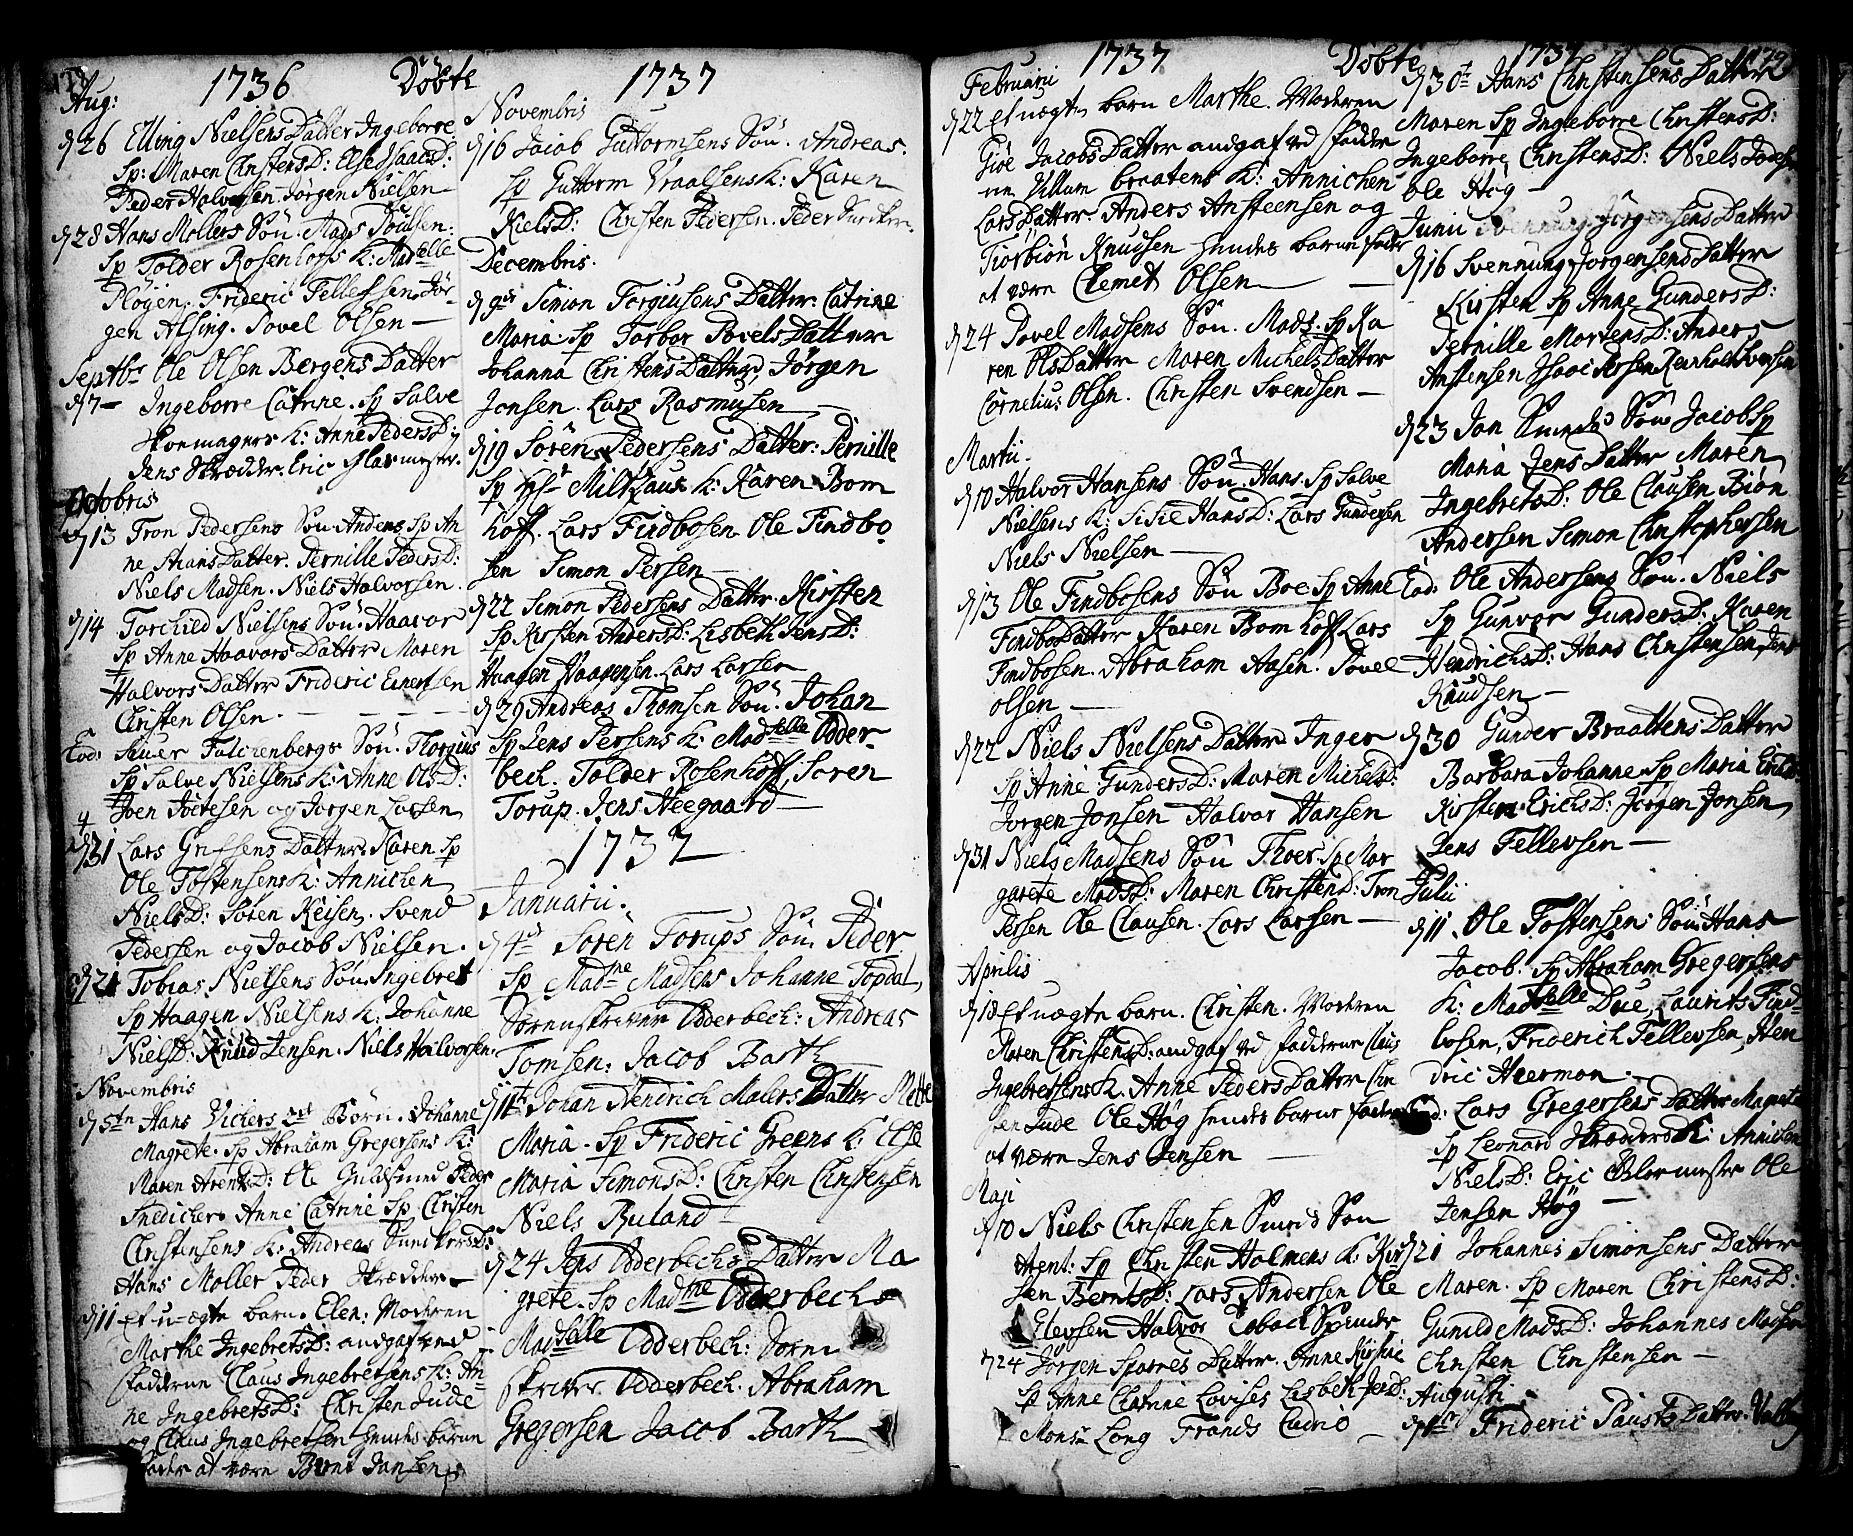 178
1736 Döbte 1737
Aug:
d 26 Elling Nielsens Datter Ingeborre
Sp: Maren ChristensD: Else IsaacsD:
Peder Halvorsen. Jörgen Nielsen
d 28 Hans Mollers Sön. Mads Poulsen.
Sp Tolder Rosenhoffs K: Madselle
Pløyen. Frideric Tellefsen Jör-
gen Alsing. Povel Olsen —
Septbr Ole Olsen Bergens Datter
d 7 — Ingeborre Catrine. Sp Salve
Skomagers K: Anne PedersD:
Jens Skrædder. Eric Glarmester.
Octobris
d 13 Tron Pedersens Sön Anders Sp An
ne HansDatter. Pernille PedersD:
Niels Madsen. Niels Halvorsen.
d 14 Torchild Nielsens Sön Haavor
Sp Anne HaavorsDatter Maren
HalvorsDatter Frideric Einertsen
Christen Olsen. —
Eod: Siuer Falchenbergs Sön. Thorgius
Sp Salve Nielsens K: Anne OlsD:
Joen Joetesen og Jörgen Larsen
d 31 Lars Grefsens Datter Karen Sp
Ole Tostensens K: Annichen
NielsD: Sören Keisen. Svend
Pedersen og Jacob Nielsen.
d 21 Tobias Nielsens Sön Ingebret
Sp Haagen Nielsens K: Johanne
NielsD: Knud Jensen. Niels Halvorsen.
Novembris
d 5te Hans Vickers Börn. Johanne
Magrete. Sp Abraham Gregersens K:
Maren ArentsD: Ole Guldsmed Peder
Snedicher Anne Catrine Sp Christen
Christensens K: Andreas
Hans Moller Peder Skrædder —
d 11 Et u-ægte barn. Elen. Moderen
Marthe IngebretsD: andgaf ved
Fadderne Claus Ingebretsens K: An-
ne IngebretsD: Christen Jude
og Claus Ingebretsen hendes barne
Fader at være Bent Jansen
Novembris
d 16 Jacob Guttormsens Sön. Andreas.
Sp Guttorm Vraalsens K: Karen
NielsD: Christen Pedersen. Peder
Decembris.
d 9de Simon Torgiusens Datter Catrine
Maria Sp Torbor PovelsDatter
Johanna ChristensDatter, Jörgen
Jensen. Lars Rasmusen —
d 19 Sören Pedersens Datter: Pernille
Sp Hr Milthaus K: Karen Bom
hoff. Lars Findbosen Ole Findbo
sen Simon Persen —
d 22 Simon Pedersens Datter. Kirsten
Sp Kirsten AndersD: Lisbeth JensD:
Haagen Haagensen. Lars Larsen
d 29 Andreas Thomsen Sön. Johan
Sp Jens Persens K: Madselle Odder-
bech. Tolder Rosenhoff, Soren
Torup. Jens Heegaard —
1737
Januarii.
d 4de Soren Torups Sön Peder
Sp Madme Madsens Johanne Topdal,
Sorenskriver Odderbech: Andreas
Tomsen: Jacob Barth
d 11te Johan Hendrich Malers Datter Mette
Maria. Sp Frideric Greens K: Else
Maria SimonsD: Christen Christensen
Niels Buland —
d 24 Jens Odderbechs Datter Ma
grete. Sp Madme Odderbechs
Madselle Odderbech: Soren
skriver Odderbech. Abraham
Gregersen Jacob Barth
1737 Döbte 1737 179
Februarii
d 22 Et uægte barn Marthe. Moderen
Giöe JacobsDatter andgaf ved Fadder
ne Villum braatens K: Annichen
LarsDatter. Anders Ansteensen og
Tiorbiön Knudsen hendes barne fader
at være Clemet Olsen —
d 24 Povel Madsens Sön. Mads. Sp Ka
ren OlsDatter Maren MichelsDatter
Cornelius Olsen. Christen Svendsen —
Martii.
d 10 Halvor Hansens Sön. Hans. Sp Salve
Nielsens K: Sisie HansD: Lars Gundersen
Niels Nielsen —
d 13 Ole Findbosens Sön Boe Sp Anne
FindboDatter Karen Bomhoff Lars
Findbosen. Abraham Aasen. Povel
olsen —
d 22 Niels Nielsens Datter Inger
Sp Anne GundersD: Maren MichelsD:
Jorgen Jonsen Halvor Hansen
d 31 Niels Madsens Sön Thoer. Sp Mar
garete MadsD: Maren ChristensD: Tron
Persen Ole Clausen. Lars Larsen —
Aprilis
d 18 Et uægte barn. Christen. Moderen
Maren ChristensD: andgaf ved Fadderne Claus
Ingebretsens K. Anne PedersDatter Chri
sten Jude Ole Hög hendes barne fader
at være Jens Jensen —
Maji
d 10 Niels Christensen Smeds Sön
Arent. Sp Christen Holmens K: Kir
sten BerntsD: Lars Andersen Ole
Elevsen Halvor Toback Spinder
d 24 Jörgen Sparres Datter. Anne Kirstine
Sp Anne Catrine Lovises Lisbeth JensD:
Monsr Long Frands Cudrio —
d 30te Hans Christensens Datter
Maren Sp Ingeborre ChristensD:
Ingeborre ChristensD: Niels
Ole Hög —
Junii Svennung Jörgensens Datter
d 16 Svennung Jorgensens Datter
Kirsten Sp Anne GundersD:
Pernille MortensD: Anders
Anstensen Isaac Persen Reinholt Iversen
d 23 Jon Smeds Sön Jacob Sp
Maria JensDatter Maren
IngebretsD: Ole Clausen Biön
Andersen Simon Christophersen
Eod: Ole Andersens Sön. Niels
Sp Gunvor GundersD: Karen
HendrichsD: Hans Christensen, Jens
Knudsen —
d 30 Gunder Braattens Datter
Barbara Johanne Sp Maria Erichs
Kirsten ErichsD: Jörgen Jonsen
Jens Tellevsen —
Julii
d 11. Ole Tostensens Sön Hans
Jacob. Sp Abraham Gregersens
K: Madselle Due, Laurits Find-
bosen, Friderich Tellevsen, Hen
dric Heermon.
Eod: Lars Gregersens Datter Magrete
Sp Leonard Skrædders K: Annichen
NielsD: Eric Glarmester Ole
Jensen Hög —
d 21 Johannes Simonsens Datter
Maren. Sp Maren ChristensD:
Gunild MadsD: Johannes Madsen
Christen Christensen —
Augusti
d 1te Frideric Pausts Datter.